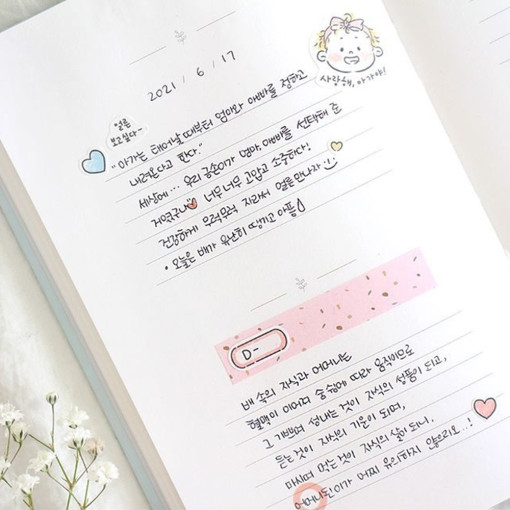 2021 / 6 / 17
사랑해, 아가야!
얼른
보고싶다~
"아가는 태어날 때부터 엄마와 아빠를 정하고
내려온다고 한다."
세상에... 우리 공손이가 엄마, 아빠를 선택해 준
거였구나 너무 너무 고맙고 소중하다!
건강하게 무럭무럭 자라서 얼른 만나자
• 오늘은 배가 유난히 땡기고 아픔
D-
배 속의 자식과 어머니는
혈맥이 이어며 숨쉼에 따라 움직이므로
그 기쁘며 성내는 것이 자식의 성품이 되고,
듣는 것이 자식의 기운이 되며,
마시며 먹는 것이 자식의 살이 되니.
어머니된 이가 어찌 유의하지 않으리오..!